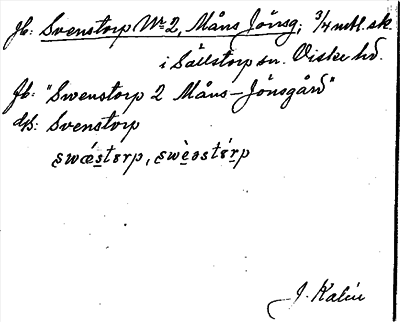 Jb: Svenstorp Nr 2, Måns Jönsg; 3/4 mtl. sk.
i Sällstorp sn. Viske hd.
Jb: "Swenstorp 2 Måns-Jönsgård"
dB: Svenstorp
swǽstɛrp, swèəstɛ́rp
J. Kalén